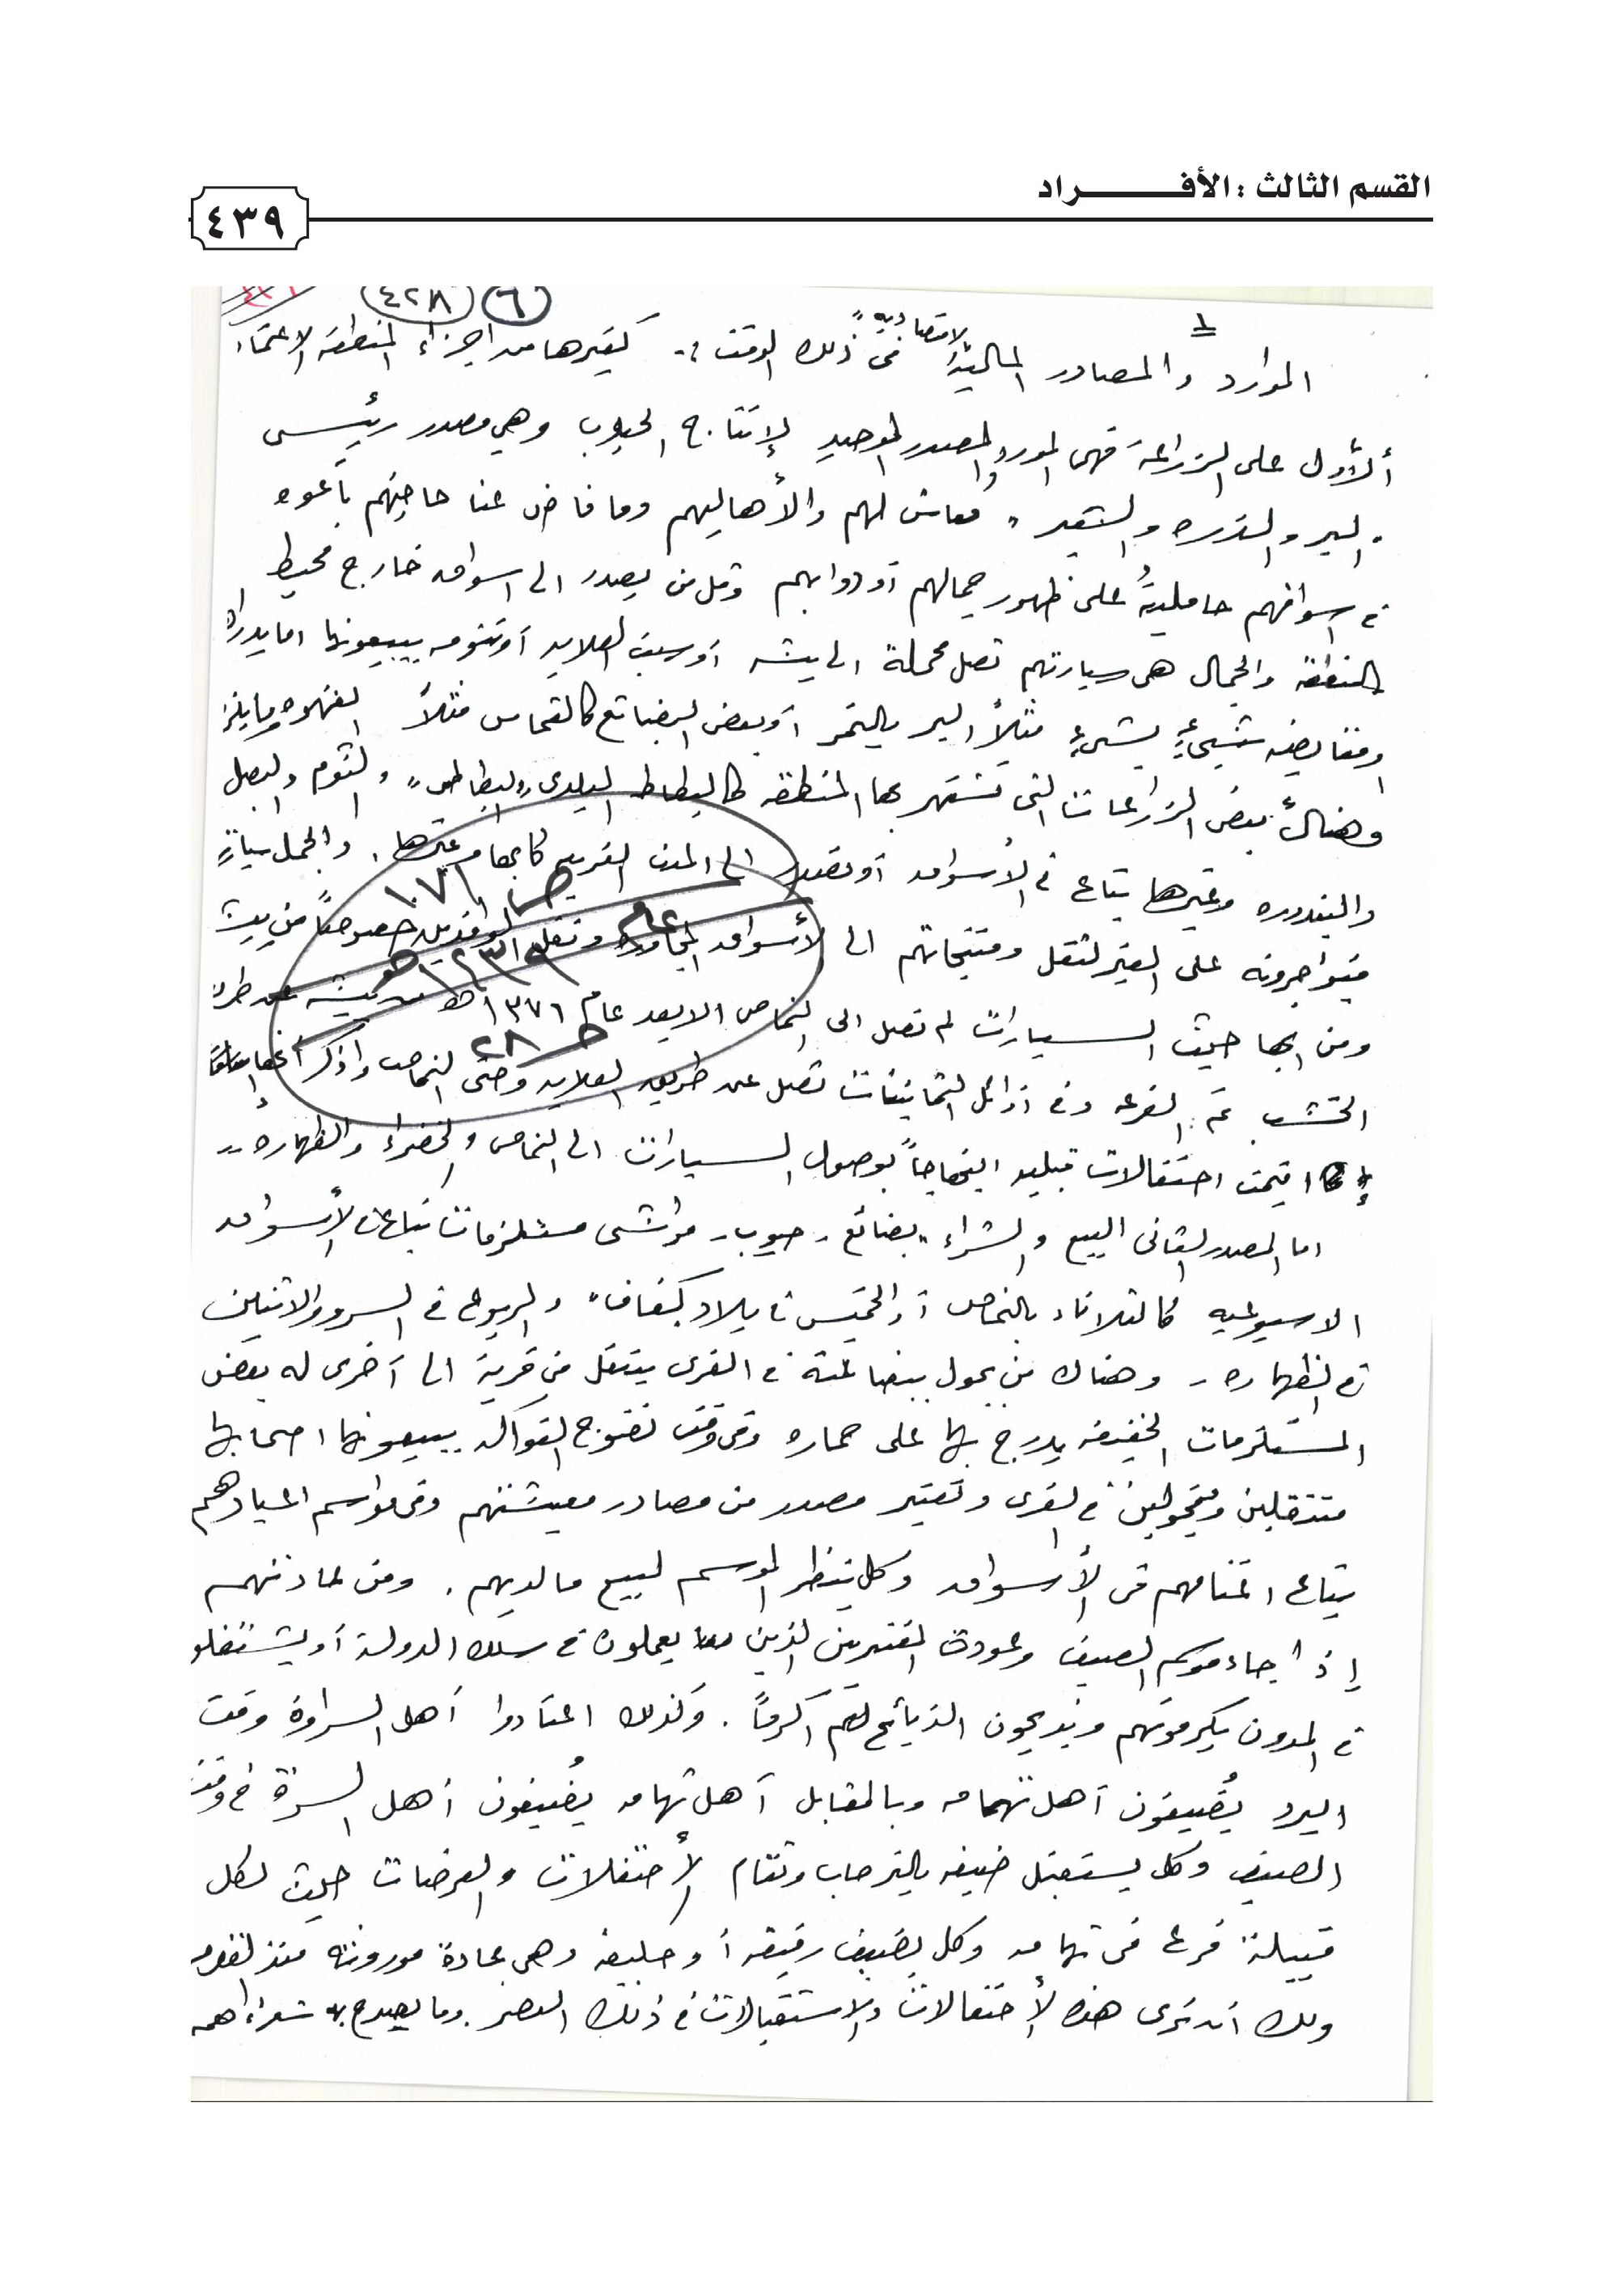 القسم الثالث : الأفــــــراد
٤٣٩
٦ ٤٢٨
١
الموارد والمصادر المالية الاقتصادية في ذلك الوقت :- كغيرها من اجزاء المنطقه الاعتماد
الأول على الزراعة فهي المورد والمصدر الوحيد لإنتاج الحبوب وهي مصدر رئيسي
البر والذره والشعير معاش لهم والأهاليهم وما فاض عنا حاجتهم باعوه
في اسواقهم حاملية على ظهور جمالهم أودوابهم وقل من يصدر الى اسواق خارج محيط
المنطقة والجمال هي سيارتهم تصل محملة الى بيشه أو سبت العلايه أو تنومه يبيعونها اما بدراهم
اومقايضه شيىءٍ بشيءٍ مثلاً البر بالتمر أو بعض البضائع كالقماش مثلاً القهوه وما يلزم
وهناك بعض الزراعات التي تشتهر بها المنطقة كالبطاط البلدي والثوم والبصل
والبندوره وغيرها يتباع في الأسواق أو تصدر الى المدن القريبه كابها وغيرها . والجمل سيارةٍ
فيتواجرونه على الغير لنقل ومنتجاتهم الى الأسواق المجاوره ونقل الوافدين خصوصاً من بيشة
ومن ابها حيث السيارات لم تصل الى النماص الابعد عام ١٣٧٦هـ من بيشه عن طريق
ص ١٧٨
الخشب ثم القرعه وفي أوائل الثمانينات تصل عن طريق العلايه وحتى النماص واذكر أنها
ص ٢٨
اقيمت احتفالات قبليه ابتهاجاً بوصول السيارات الى النماص والخضراء والظهاره ..
اما المصدر الثاني البيع والشراء " بضائع - حبوب - مواشي مستلزمات تباع في الأسواق
الاسبوعيه كالثلاثاء بالنماص أو الخميس في بلاد بكفاف " والربوع في السرو والاثنين
في الظهاره - وهناك من يجول ببضاعته في القرى يتنقل من قرية الى آخرى له بعض
المستلزمات الخفيفه يدرج بها على حماره وفي وقت نضوج الفواكه يبيعونها اصحابها
متنقلين ومتجولين في القرى وتعتبر مصدر من مصادر معيشتهم وفي مواسم اعيادهم
يتباع اغنامهم في الأسواق وكل ينتظر الموسم لبيع مالديهم . ومن عادتهم
إذا جاء موسم الصيف وعودت المغتربين الذين يعملون في سلك الدولة أو يشتغلو
في المدون يكرمونهم ويذبحون الذبائح لهم اكرماً . وكذلك اعتادوا أهل السراوة وقت
البرد يُضيفون آهل تهامه وبالمقابل آهل تهامه يضُيفون أهل السراة في وقت
الصيف وكل يستقبل ضيفه بالترحاب وتقام الأحتفلات والعرضات حيث لكل
قبيلة فرع في تهامه وكل يضيف رفيقه أو حليفه وهي عادة موروثه منذ القدم
ولك آن ترى هذه الأحتفالات والاستقبالات في ذلك العصر . وما يصدح به شعراءهم